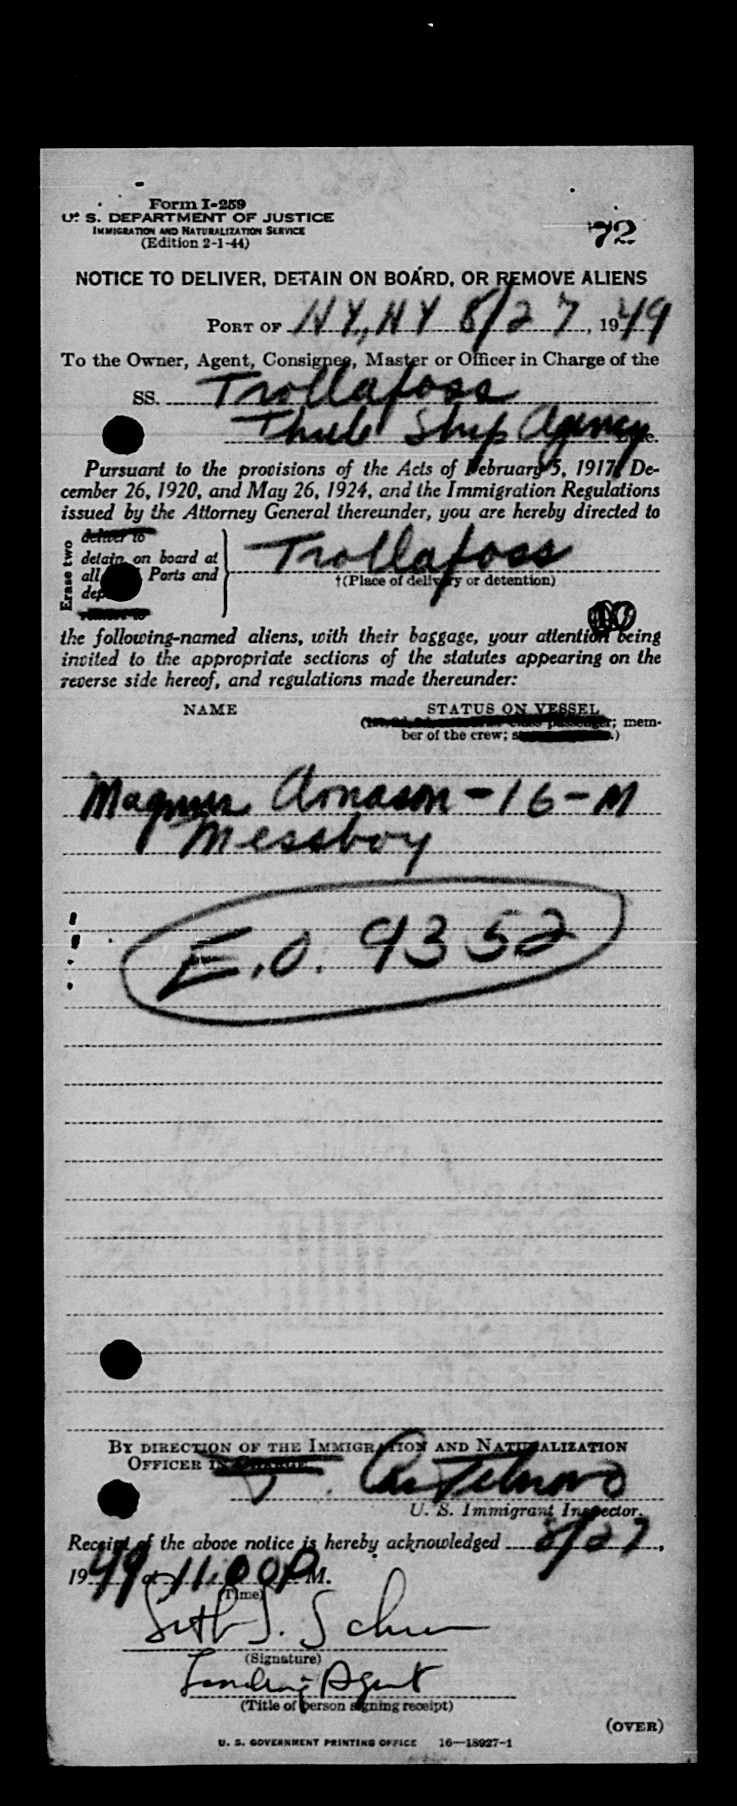 Form I-259
U. S. DEPARTMENT OF JUSTICE
IMMIGRATION AND NATURALIZATION SERVICE
(Edition 2-1-44)
72
NOTICE TO DELIVER, DETAIN ON BOARD, OR REMOVE ALIENS
PORT OF N Y., N Y 8/27, 1949
To the Owner, Agent, Consignee, Master or Officer in Charge of the
SS. Trollafoss
Thule Ship Agency
Pursuant to the provisions of the Acts of February 5, 1917, De-
cember 26, 1920, and May 26, 1924, and the Immigration Regulations
issued by the Attorney General thereunder, you are hereby directed to
Erase two
deliver to
detain on board at
all Ports and
Trollafoss
†(Place of delivery or detention)
remove to
10
the following-named aliens, with their baggage, your attention being
invited to the appropriate sections of the statutes appearing on the
reverse side hereof, and regulations made thereunder:
NAME
STATUS ON VESSEL
passenger; mem-
ber of the crew;
Magnus Arnason - 16 - M
Messboy
E.O. 9352
BY DIRECTION OF THE IMMIGRATION AND NATURALIZATION
OFFICER IN CHARGE
U. S. Immigrant Inspector.
Receipt of the above notice is hereby acknowledged 8/27,
1949 at 11:00 P M.
(Time)
Seth J.
(Signature)
Landing Agent
(Title of person signing receipt)
(OVER)
U. S. GOVERNMENT PRINTING OFFICE 16—18927-1